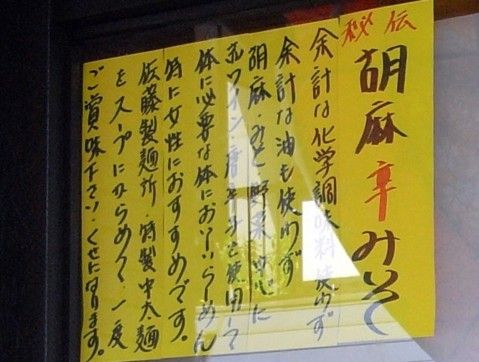 秘伝
胡麻辛みそ
余計な化学調味料使わず
余計な油も使わず
胡麻・みそ・野菜中心に
赤ワイン・唐辛子を使用して
体に必要な体においしいらーめん
特に女性におすすめです。
佐藤製麺所・特製中太麺
をスープにからめて、一度
ご賞味下さい。くせになります。